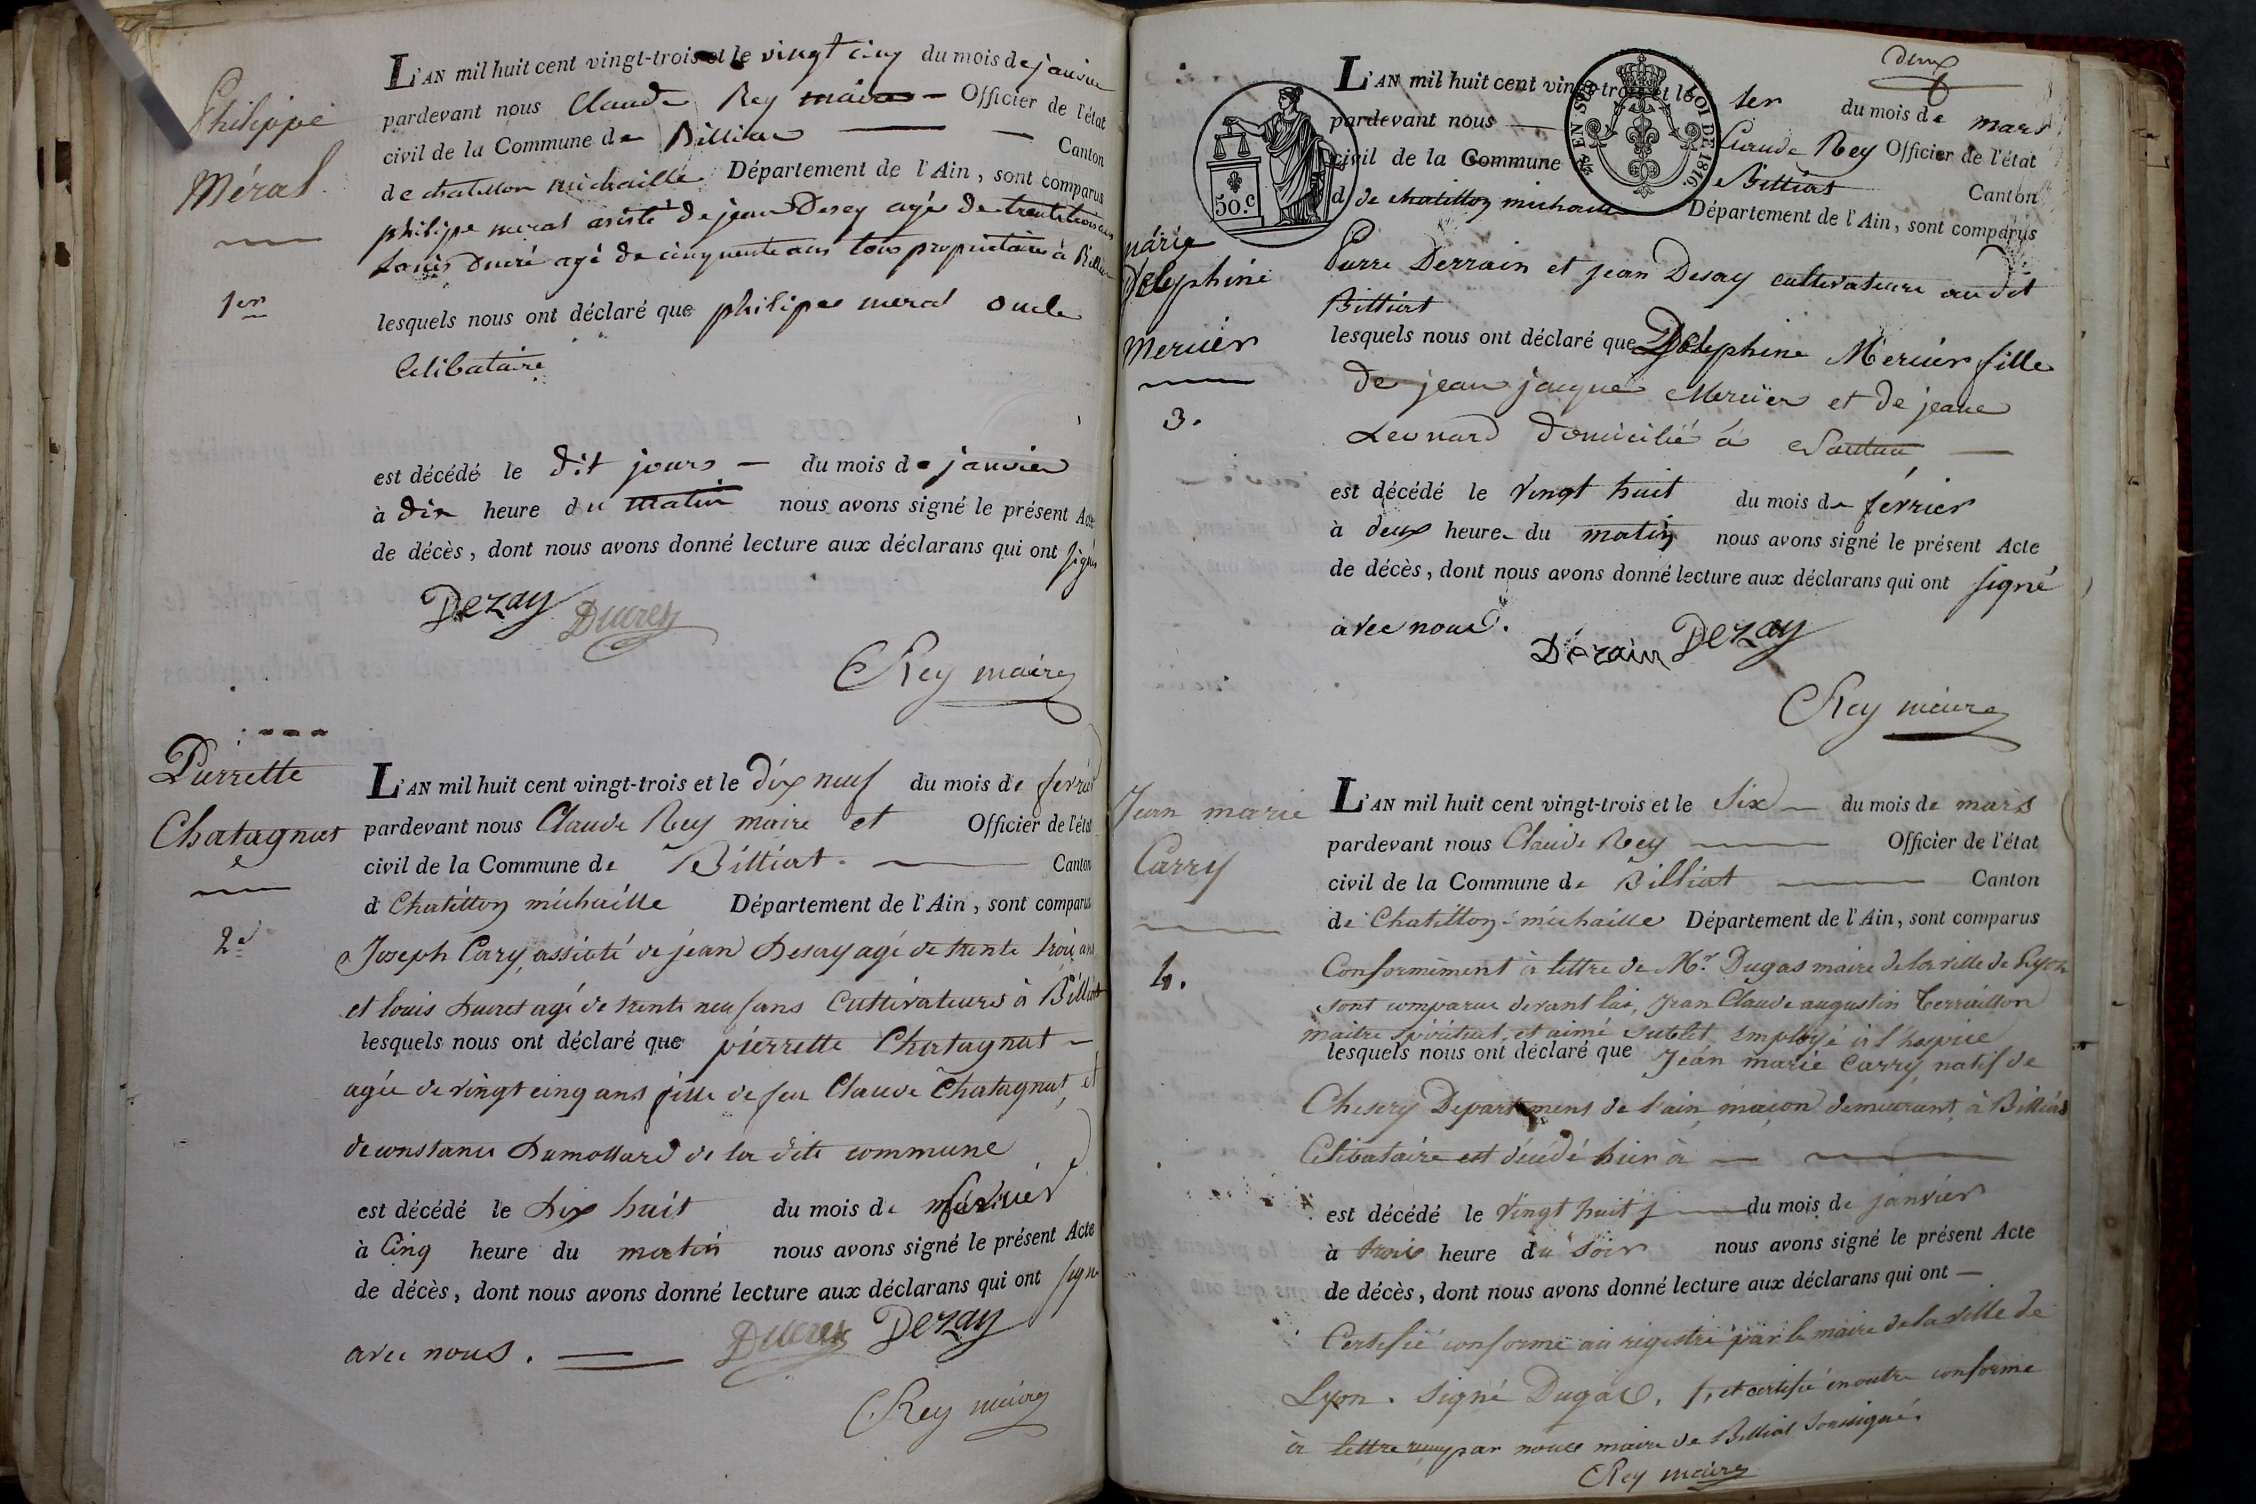 Philippe
Méral
1er
L'AN mil huit cent vingt-trois et le vingt cinq du mois de janvier
pardevant nous Claude Rey maire Officier de l'état
civil de la Commune de Billiat Canton
de chatillon michaille Département de l'Ain, sont comparus
philipe meral assisté de jean Desay agé de trente trois ans
Louis Ducré agé de cinquente ans tous proprietaires à Billiat
lesquels nous ont déclaré que philipe meral oncle
Celibataire
est décédé le dit jours du mois de janvier
à dix heure du matin nous avons signé le présent Acte
de décès, dont nous avons donné lecture aux déclarans qui ont signés
Dezay Ducrey
CRey maire
Pierrette
Chatagnat
2e
L'AN mil huit cent vingt-trois et le dix neuf du mois de fevrier
pardevant nous Claude Rey maire et Officier de l'état
civil de la Commune de Billiat. Canton
d Chatillon michaille Département de l'Ain, sont comparus
Joseph Cary, assisté de jean Desay agé de trente trois ans
et louis Ducret agé de trente neuf ans Cultivateurs à Billiat
lesquels nous ont déclaré que pierrette Chatagnat
agée de vingt cinq ans fille de feu Claude Chatagnat, et
de constance Dumollard de la dite commune
est décédé le Dix huit du mois de février
à Cinq heure du matin nous avons signé le présent Acte
de décès, dont nous avons donné lecture aux déclarans qui ont signé
avec nous.
Ducrey Dezay
CRey maire
deux
50.c
EN SUS LOI DE 1816.
marie
Delphine
Mercier
3.
L'AN mil huit cent vingt-trois et le 1er du mois de mars
pardevant nous Claude Rey Officier de l'état
civil de la Commune Billiat Canton
d de chatillon michaille Département de l'Ain, sont comparus
Pierre Derrain et jean Desay cultivateurs au dit
Billiat
lesquels nous ont déclaré que Delphine Mercier fille
de jean jacque Mercier et de jeane
Leonard domicilié à
est décédé le vingt huit du mois de février
à deux heure du matin nous avons signé le présent Acte
de décès, dont nous avons donné lecture aux déclarans qui ont signé
avec nous.
Dérain Dezay
CRey maire
Jean marie
Carry
4.
L'AN mil huit cent vingt-trois et le Six du mois de mars
pardevant nous Claude Rey Officier de l'état
civil de la Commune de Billiat Canton
de Chatillon-michaille Département de l'Ain, sont comparus
Conformément à lettre de Mr. Dugas maire de la ville de Lyon
sont comparus devant lui, Jean Claude augustin Terraillon
maitre Spirituel, et aimé Sublet, Employé à l'hospice
lesquels nous ont déclaré que Jean marie Carry, natif de
Chesery Departement de l'ain, maçon demeurant à Billiat
Celibataire est décédé hier à
est décédé le vingt huit du mois de janvier
à trois heure du Soir nous avons signé le présent Acte
de décès, dont nous avons donné lecture aux déclarans qui ont
Certifié conforme au registre par le maire de la ville de
Lyon. Signé Dugas, et certifié en outre conforme
à lettre reçu par nous maire de Billiat Soussigné.
CRey maire